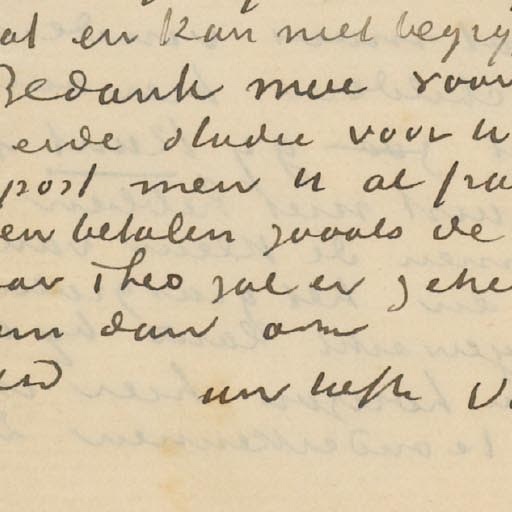 at en kan niet begryp
Bedank moe voor
eerde studie voor u
post men u al fra
en betalen zooals de
aar Theo zal er zeker
dan om
uw liefh V